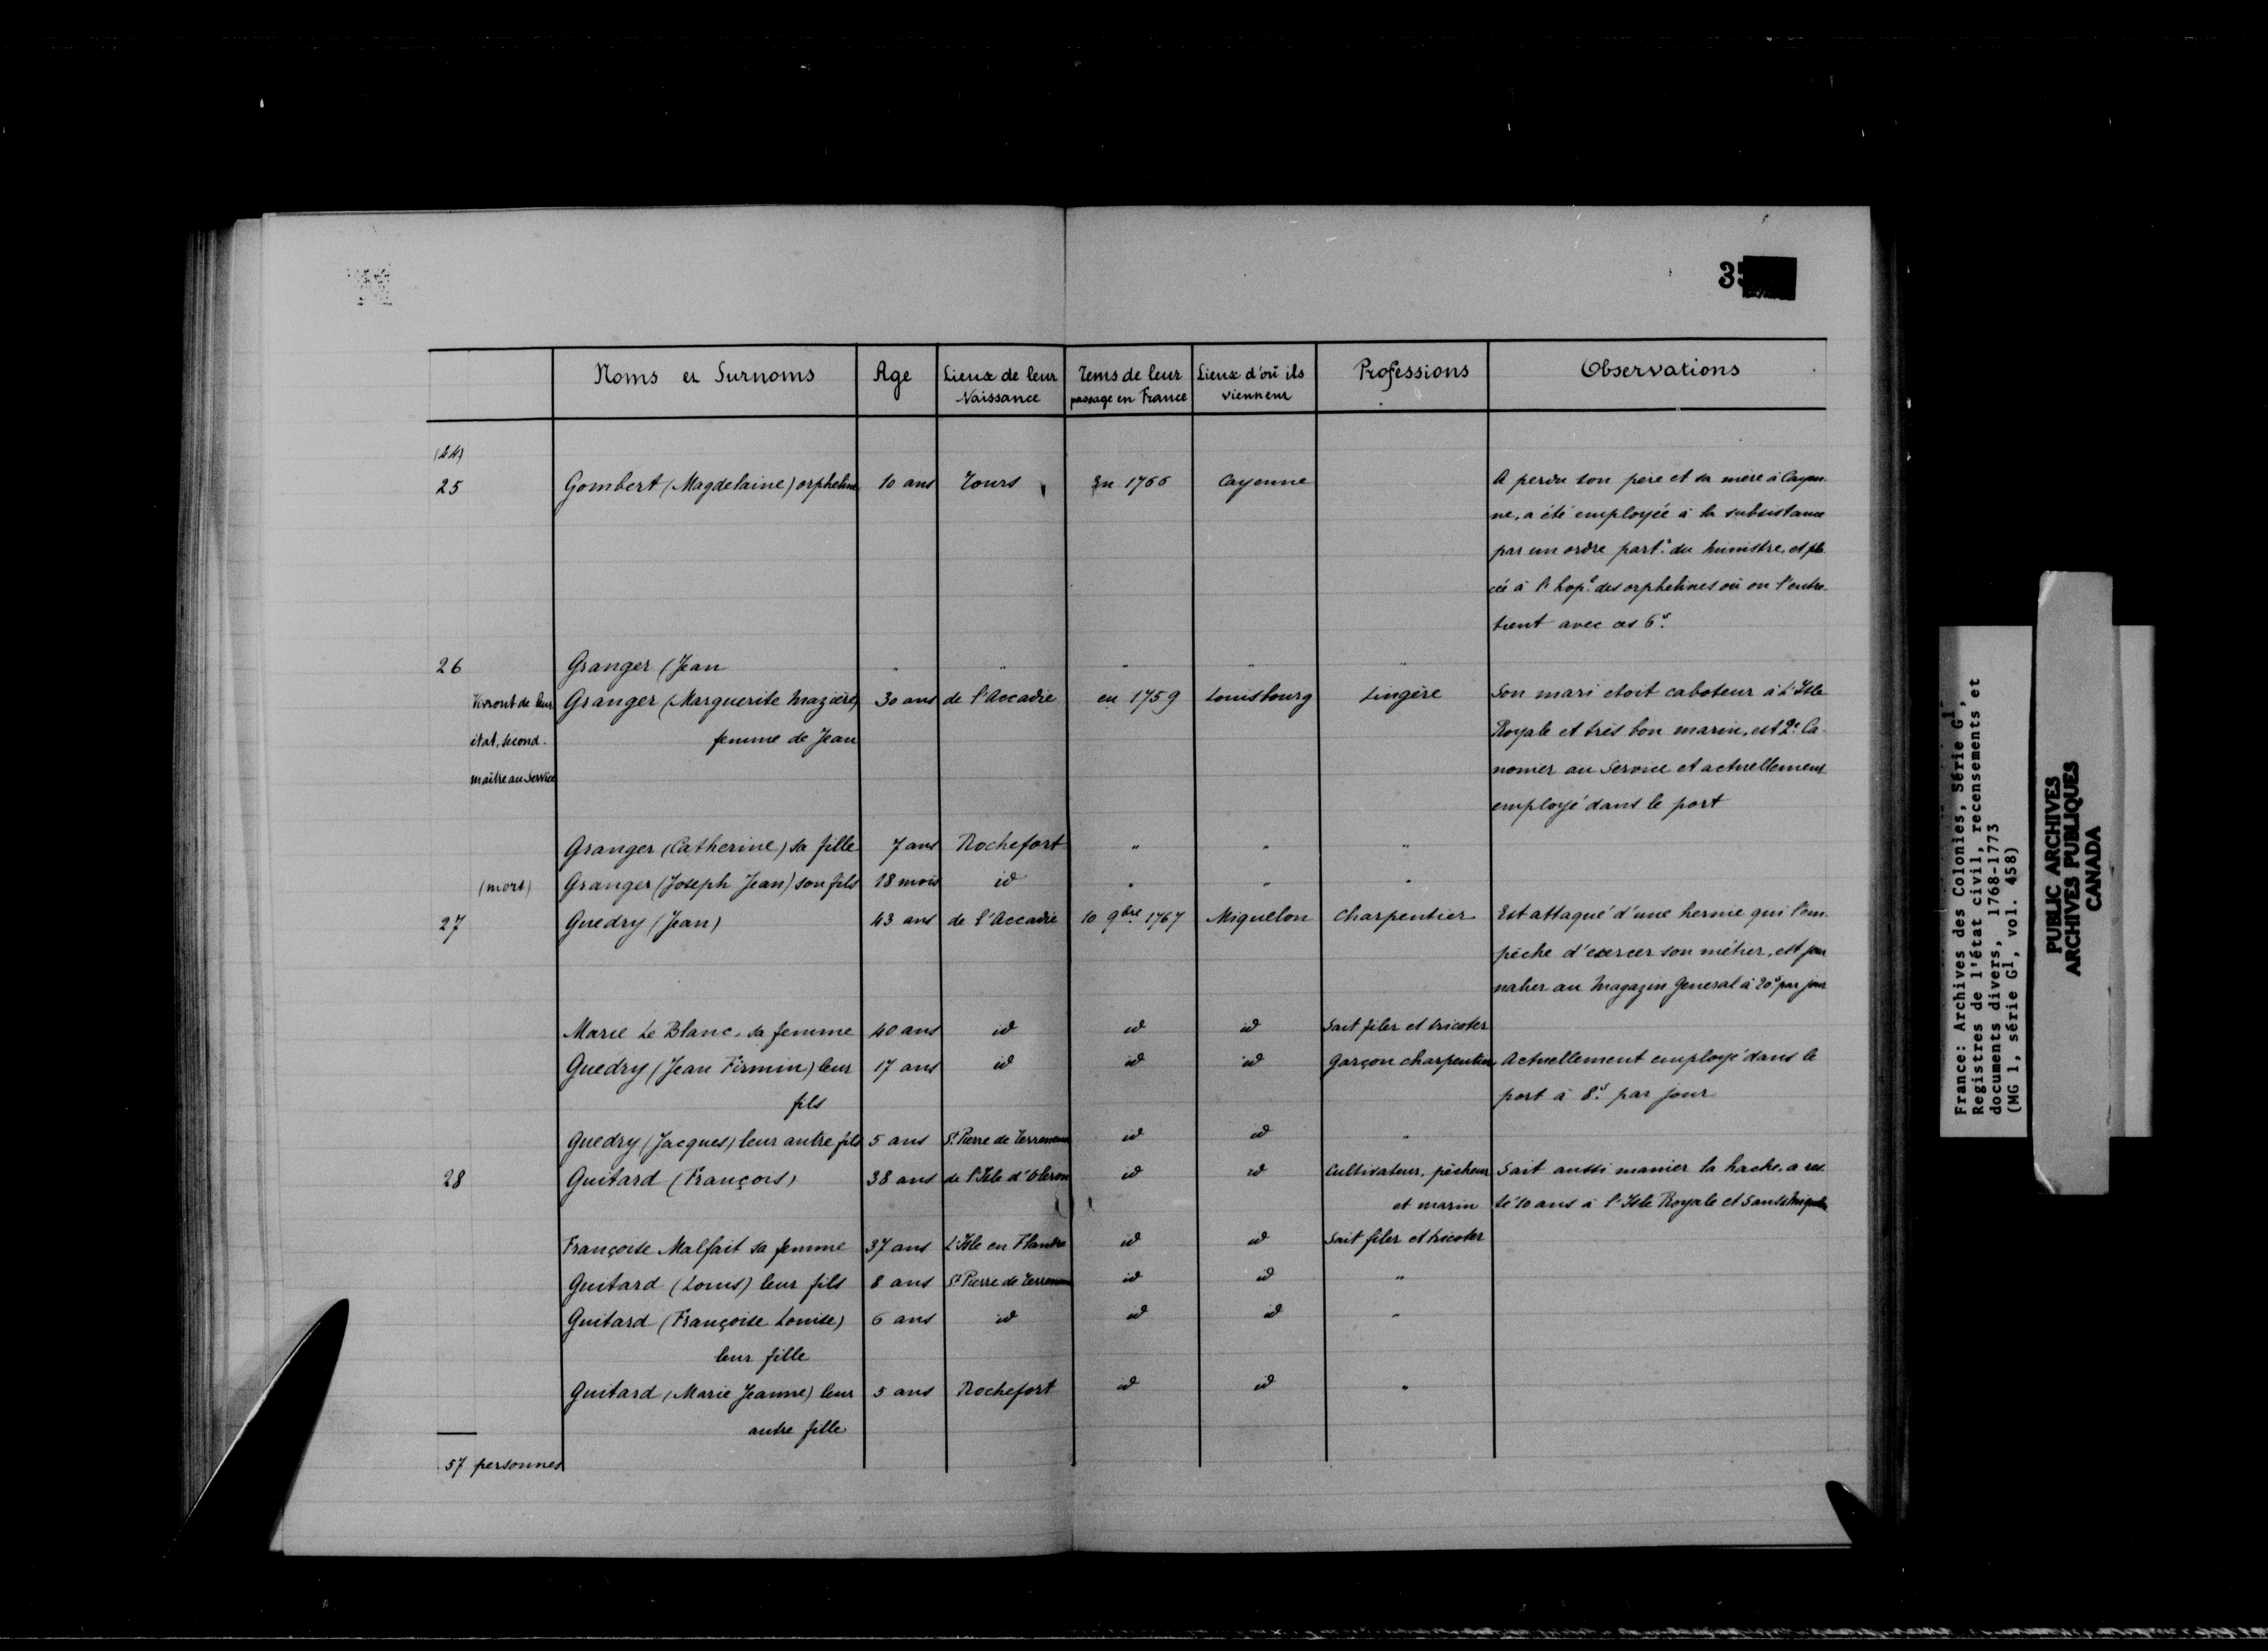 3
Noms et Surnoms | Age | Lieux de leur Naissance | Tems de leur passage en France | Lieux d'où ils viennent | Professions | Observations
(24)
25 Gombert (Magdelaine) orpheline 10 ans Tours En 1766 Cayenne A perdu son père et sa mère à Cayen-
ne, a été employée à la subsistance
par un ordre part.r du ministre, et pla
cée à l'hop.l des orphelines où on l'entre-
tient avec ces 6s.
26 Granger (Jean " " " " "
Vivront de leur Granger (Marguerite Mazière) 30 ans de l'Accadie en 1759 Louisbourg Lingère Son mari etoit caboteur à L'Isle
état, second femme de Jean Royale et très bon marin, est 2e Ca-
maître au Service nonier au Service et actuellement
employé dans le port
Granger (Catherine) sa fille 7 ans Rochefort " " "
(mort) Granger (Joseph Jean) son fils 18 mois id " " "
27 Guedry (Jean) 43 ans de l'Accadie 10 9bre 1767 Miquelon Charpentier Est attaqué d'une hernie qui l'em-
pêche d'exercer son métier, est jour
nalier au Magazin General à 20s par jour
Marie Le Blanc, sa femme 40 ans id id id Sait filer et tricoter
Guedry (Jean Firmin) leur 17 ans id id id Garçon charpentier Actuellement employé dans le
fils port à 8s. par jour
Guedry (Jacques) leur autre fils 5 ans St Pierre de Terreneuve id id "
28 Guitard (François) 38 ans de l'Isle d'Oleron id id Cultivateur, pêcheur Sait aussi manier la hache, a res
et marin té 10 ans à l'Isle Royale et
Françoise Malfait sa femme 37 ans L'Isle en Flandre id id Sait filer et tricoter
Guitard (Louis) leur fils 8 ans St Pierre de Terreneuve id id "
Guitard (Françoise Louise) 6 ans id id id "
leur fille
Guitard (Marie Jeanne) leur 5 ans Rochefort id id "
autre fille
57 personnes
France: Archives des Colonies, Série G1,
Registres de l'état civil, recensements et
documents divers, 1768-1773
(MG 1, série G1, vol. 458)
PUBLIC ARCHIVES
ARCHIVES PUBLIQUES
CANADA